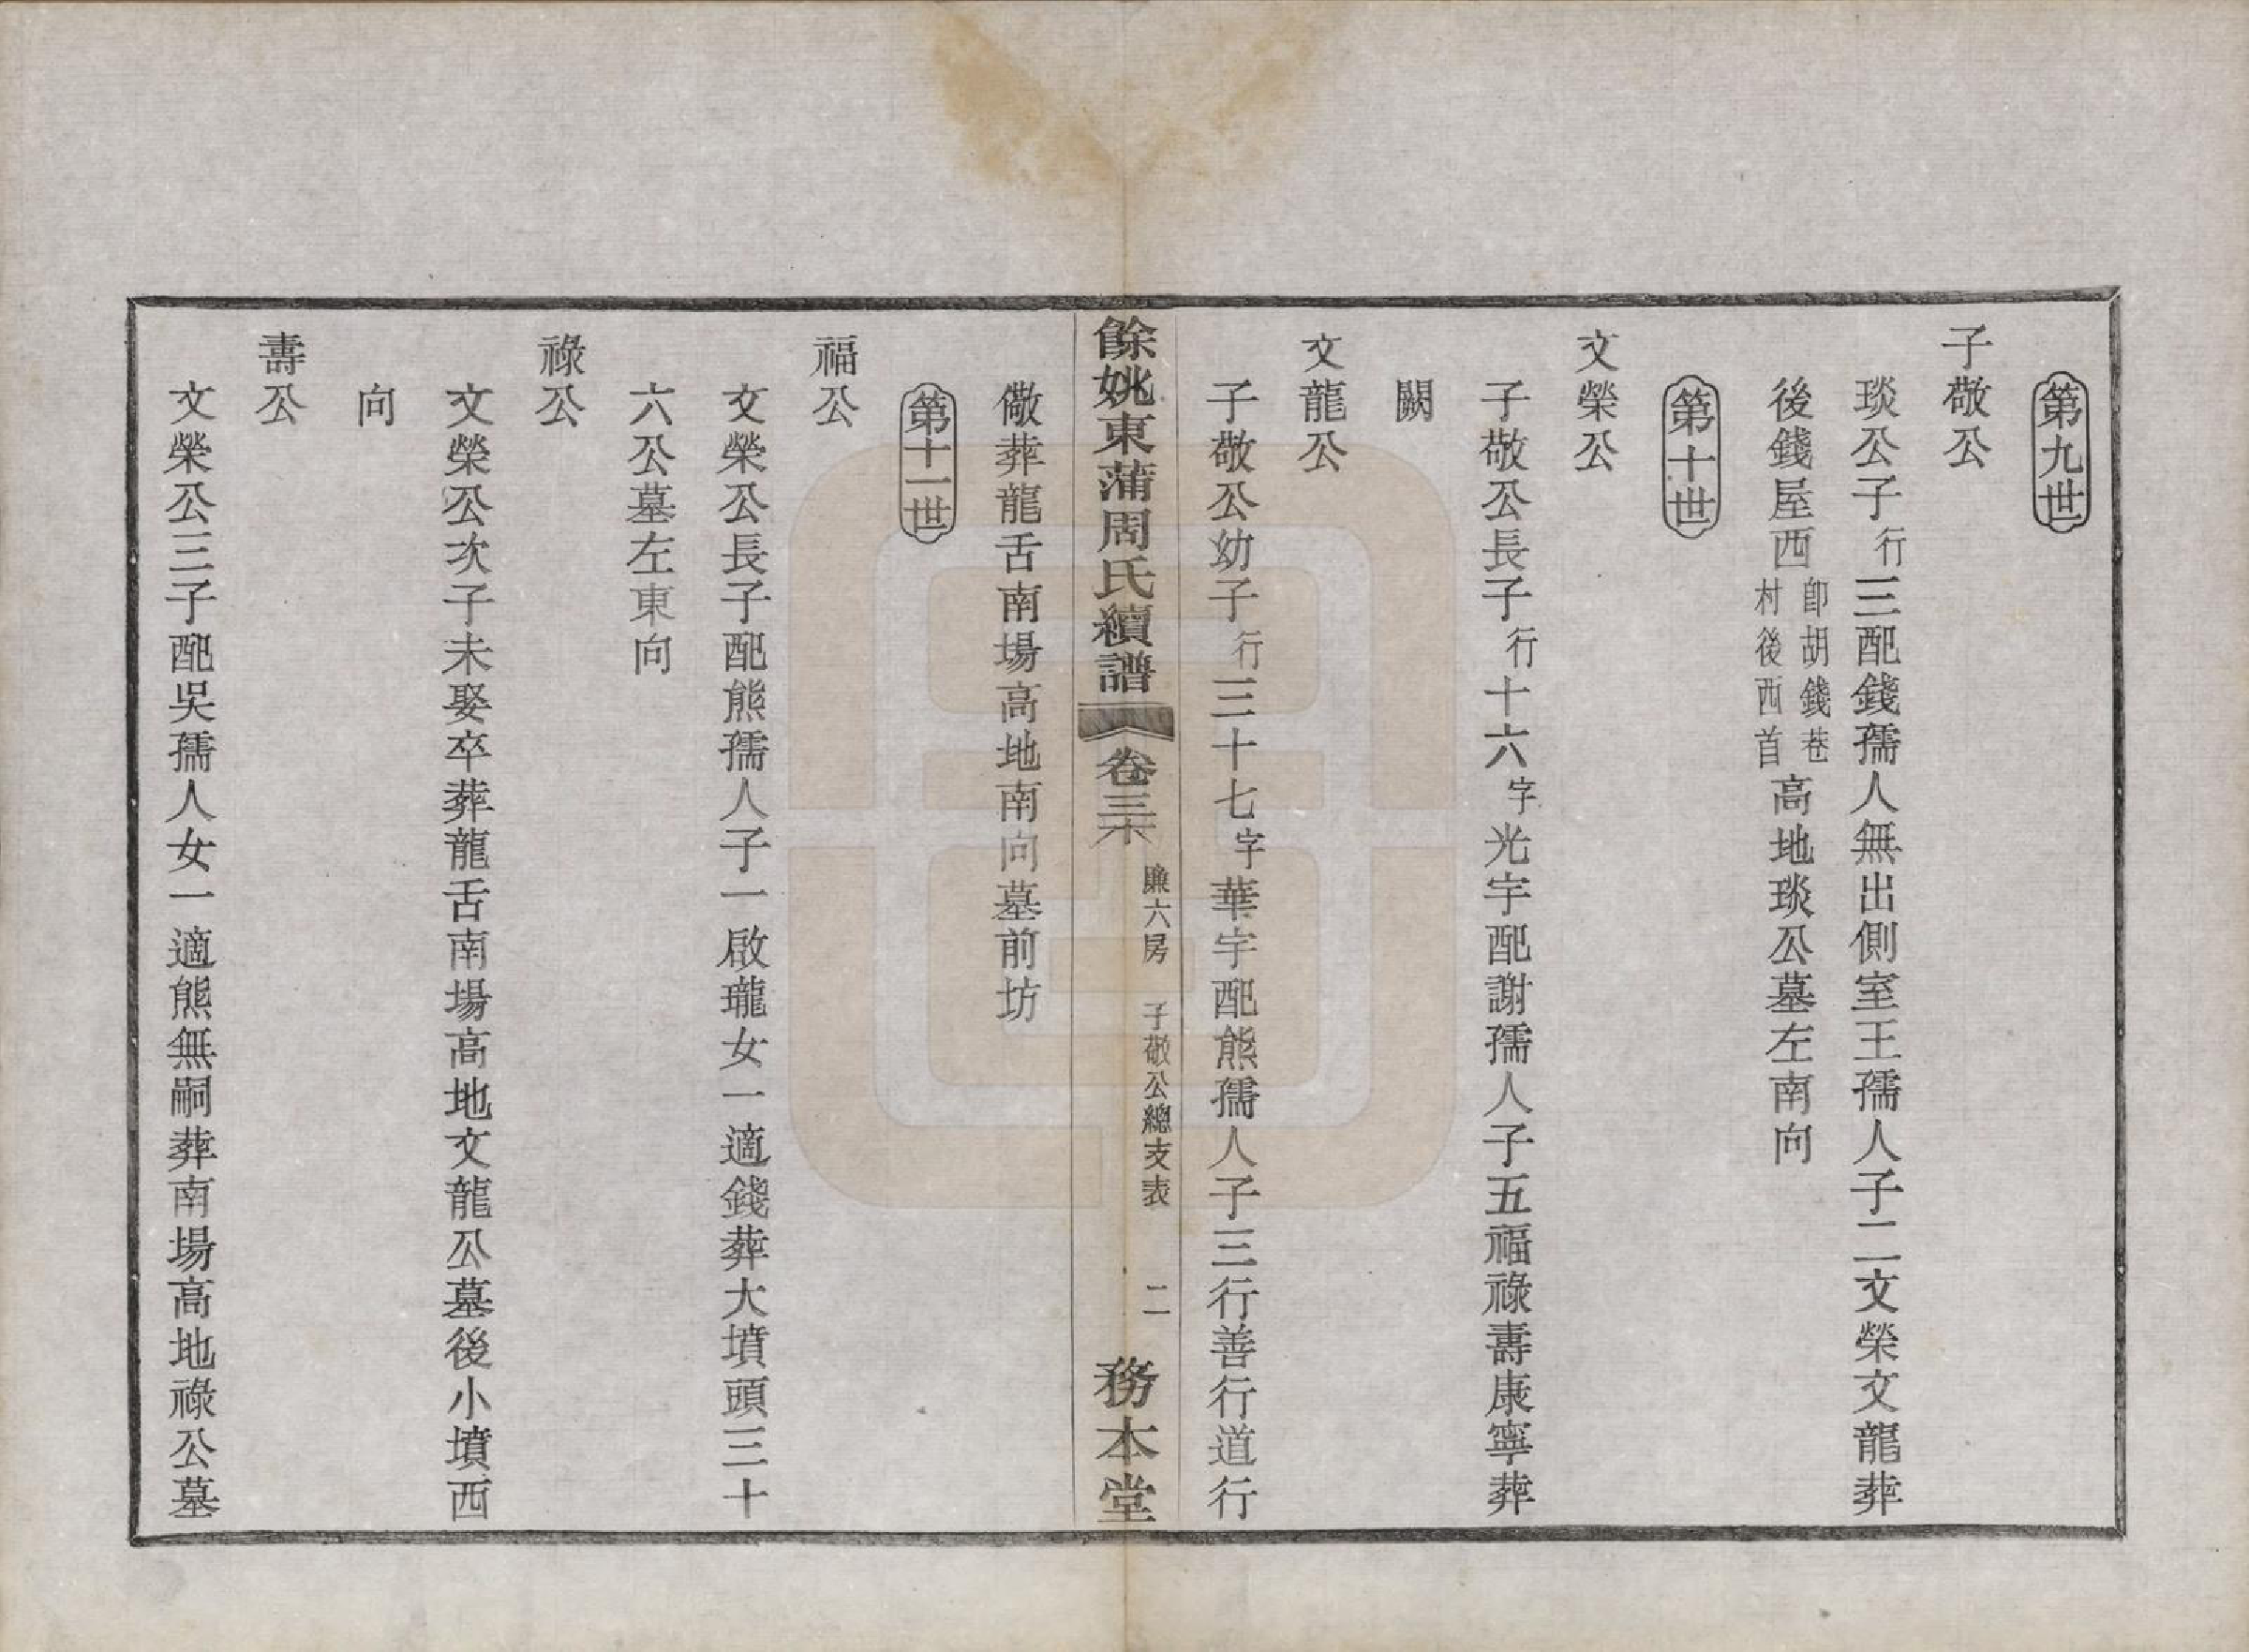 第九世
子敬公
琰公子行三配錢孺人無出側室王孺人子二文榮文龍葬
後錢屋西卽胡錢巷村後西首高地琰公墓左南向
第十世
文榮公
子敬公長子行十六字光宇配謝孺人子五福祿壽康寧葬
闕
文龍公
子敬公幼子行三十七字華宇配熊孺人子三行善行道行
餘姚東蒲周氏續譜
卷三十
廉六房
子敬公總支表
二
務本堂
儆葬龍舌南場高地南向墓前坊
第十一世
福公
文榮公長子配熊孺人子一啟瓏女一適錢葬大墳頭三十
六公墓左東向
祿公
文榮公次子未娶卒葬龍舌南場高地文龍公墓後小墳西
向
壽公
文榮公三子配吳孺人女一適熊無嗣葬南場高地祿公墓